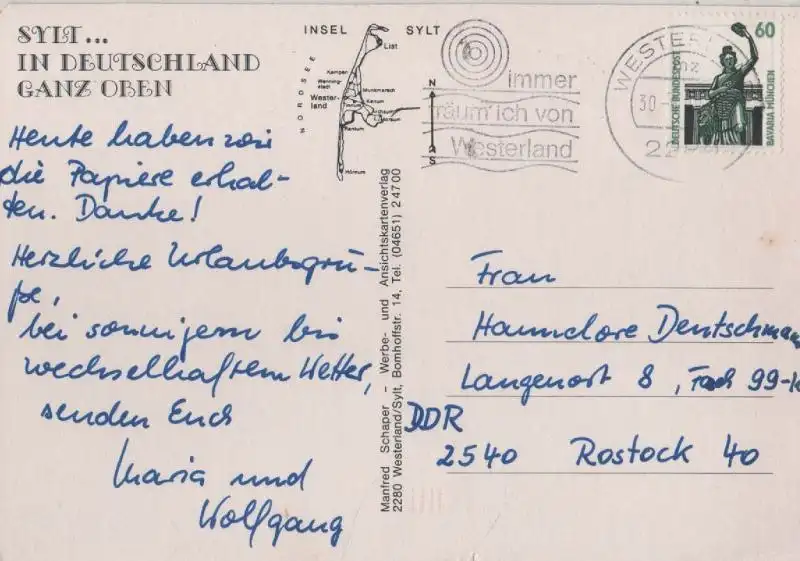 SYLT...
IN DEUTSCHLAND
GANZ OBEN
Heute haben wir
die Papiere erhal-
ten. Danke!
Herzliche Urlaubsgrü-
ße,
bei sonnigem bis
wechselhaftem Wetter,
senden Euch
Maria und
Wolfgang
INSEL SYLT
NORDSEE
List
Kampen
Wenning-
stedt
Munkmarsch
Wester-
land
Keitum
Tinnum
Archsum
Morsum
Rantum
Hörnum
N
S
Manfred Schaper - Werbe- und Ansichtskartenverlag
2280 Westerland/Sylt, Bomhoffstr. 14, Tel. (04651) 2 47 00
immer
träum'ich von
Westerland
WESTER
30
22
60
DEUTSCHE BUNDESPOST
BAVARIA MÜNCHEN
Frau
Hannelore Deutschmann
Langenort 8, Fach 99-
DDR
2540 Rostock 40